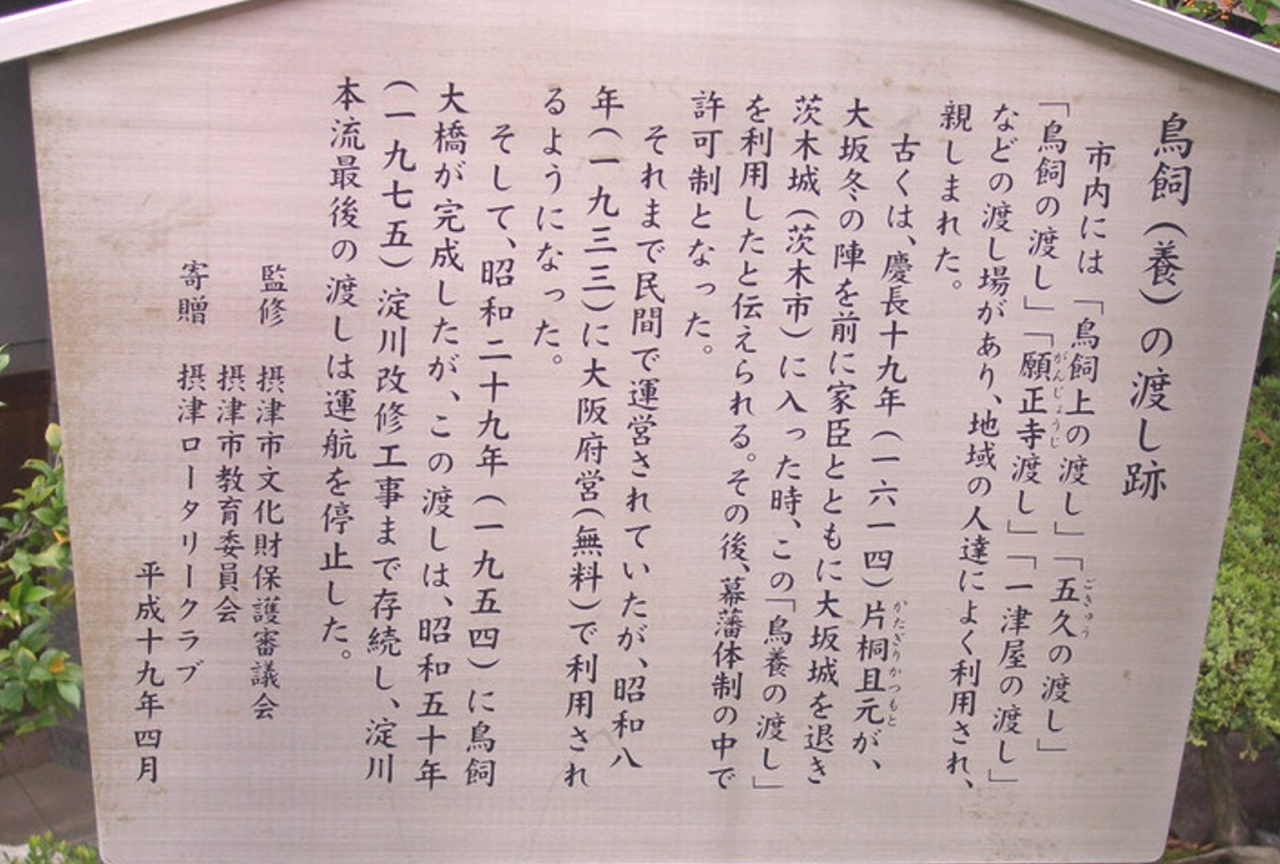 鳥飼(養)の渡し跡
市内には「鳥飼上の渡し」「五久の渡し」
ごきゅう
「鳥飼の渡し」「願正寺渡し」「一津屋の渡し」
がんじょうじ
などの渡し場があり、地域の人達によく利用され、
親しまれた。
古くは、慶長十九年(一六一四)片桐且元が、
かたぎりかつもと
大坂冬の陣を前に家臣とともに大坂城を退き
茨木城(茨木市)に入った時、この「鳥養の渡し」
を利用したと伝えられる。その後、幕藩体制の中で
許可制となった。
それまで民間で運営されていたが、昭和八
年(一九三三)に大阪府営(無料)で利用され
るようになった。
そして、昭和二十九年(一九五四)に鳥飼
大橋が完成したが、この渡しは、昭和五十年
(一九七五)淀川改修工事まで存続し、淀川
本流最後の渡しは運航を停止した。
監修 摂津市文化財保護審議会
摂津市教育委員会
寄贈 摂津ロータリークラブ
平成十九年四月